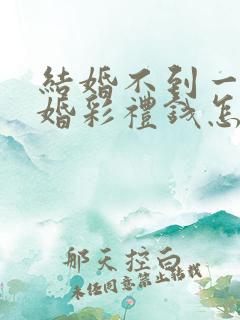 結婚不到一
婚彩禮錢怎
那天控白
未经同意禁止转载